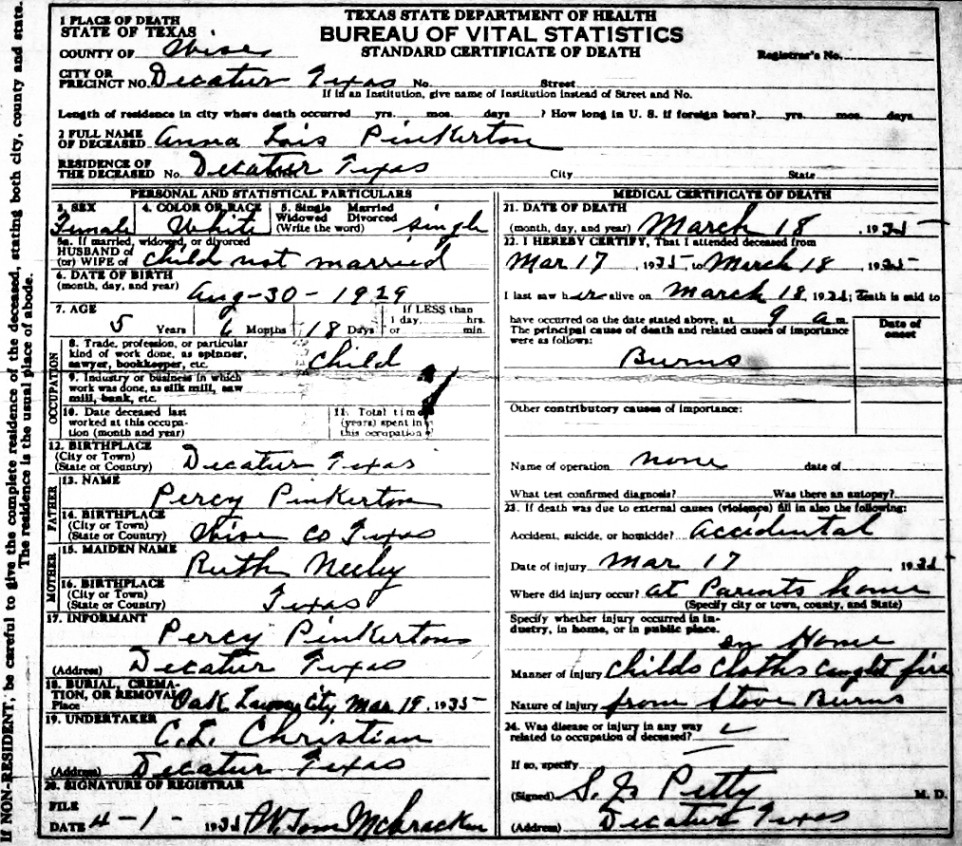 TEXAS STATE DEPARTMENT OF HEALTH
BUREAU OF VITAL STATISTICS
STANDARD CERTIFICATE OF DEATH
1 PLACE OF DEATH
STATE OF TEXAS
COUNTY OF Wise
Registrar's No.
CITY OR PRECINCT NO. Decatur Texas No. Street
If in an Institution, give name of Institution instead of Street and No.
Length of residence in city where death occurred yrs. mos. days ? How long in U. S. if foreign born? yrs. mos. days
2 FULL NAME OF DECEASED Anna Lois Pinkerton
RESIDENCE OF THE DECEASED No. Decatur Texas City State
PERSONAL AND STATISTICAL PARTICULARS
3. SEX Female 4. COLOR OR RACE White 5. Single Married Widowed Divorced (Write the word) single
5a. If married, widowed, or divorced
HUSBAND OF (or) WIFE OF child not married
6. DATE OF BIRTH
(month, day, and year) Aug-30-1929
7. AGE 5 Years 6 Months 18 Days If LESS than 1 day, hrs. or min.
OCCUPATION
8. Trade, profession, or particular kind of work done, as spinner, sawyer, bookkeeper, etc. Child
9. Industry or business in which work was done, as silk mill, saw mill, bank, etc.
10. Date deceased last worked at this occupation (month and year)
11. Total time (years) spent in this occupation
12. BIRTHPLACE
(City or Town)
(State or Country) Decatur Texas
FATHER
13. NAME Percy Pinkerton
14. BIRTHPLACE
(City or Town)
(State or Country) Wise Co Texas
MOTHER
15. MAIDEN NAME Ruth Neely
16. BIRTHPLACE
(City or Town)
(State or Country) Texas
17. INFORMANT Percy Pinkerton
(Address) Decatur Texas
18. BURIAL, CREMATION, OR REMOVAL
Place Oak Mar 19, 1935
19. UNDERTAKER C.L. Christian
(Address) Decatur Texas
20. SIGNATURE OF REGISTRAR
FILE DATE 4-1-1935 Tom McCracken
MEDICAL CERTIFICATE OF DEATH
21. DATE OF DEATH
(month, day, and year) March 18, 1935
22. I HEREBY CERTIFY, That I attended deceased from
Mar 17, 1935, to March 18, 1935
I last saw her alive on March 18, 1935; death is said to
have occurred on the date stated above, at 9 a.m.
The principal cause of death and related causes of importance were as follows:
Date of onset
Burns
Other contributory causes of importance:
Name of operation none date of
What test confirmed diagnosis? Was there an autopsy?
23. If death was due to external causes (violence) fill in also the following:
Accident, suicide, or homicide? accidental
Date of injury Mar 17, 1935
Where did injury occur? at Parents home
(Specify city or town, county, and State)
Specify whether injury occurred in industry, in home, or in public place.
in Home
Manner of injury Childs cloths caught fire
Nature of injury from Stove Burns
24. Was disease or injury in any way related to occupation of deceased?
If so, specify
(Signed) Petty M. D.
(Address) Decatur Texas
If NON-RESIDENT, be careful to give the complete residence of the deceased, stating both city, county and state.
The residence is the usual place of abode.